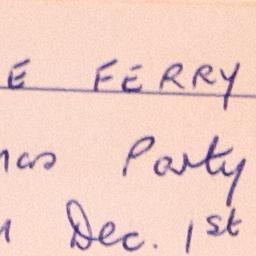 E FERRY
mas Party
Dec. 1st